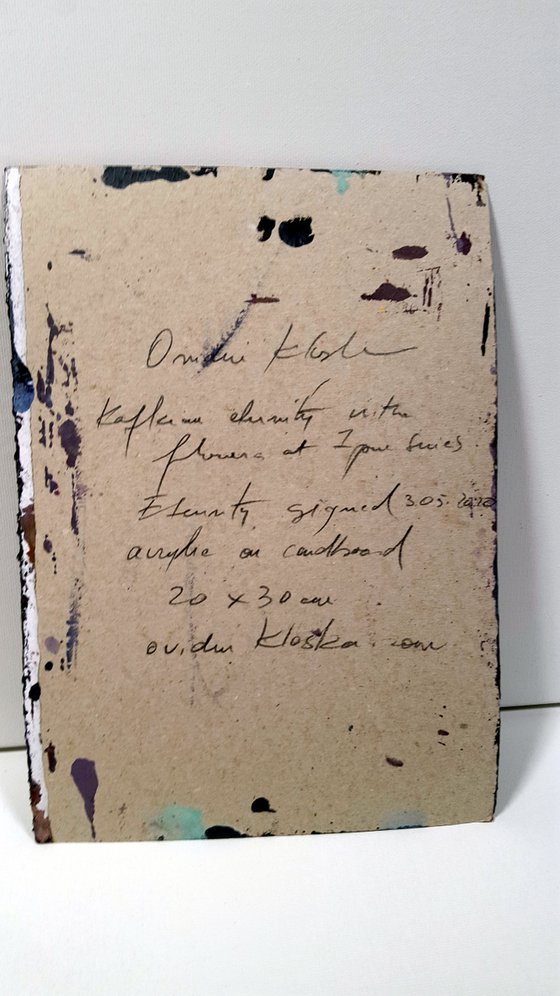 Ovidiu Kloska
Kafkian eternity with
flowers at 7pm Series
Eternity signed 3.05.2020
acrylic on cardboard
20 x 30 cm
ovidiu kloska.com